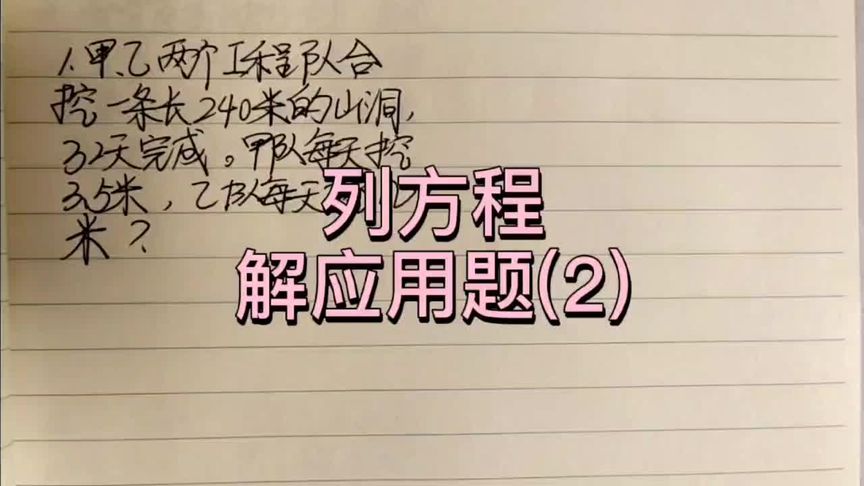 1.甲、乙两个工程队合
挖一条长240米的山洞,
32天完成。甲队每天挖
3.5米,乙队每天
米?
列方程
解应用题(2)